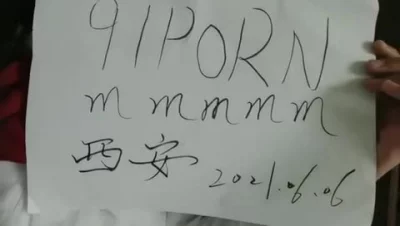 91PORN
mmmmm
西安
2021.06.06